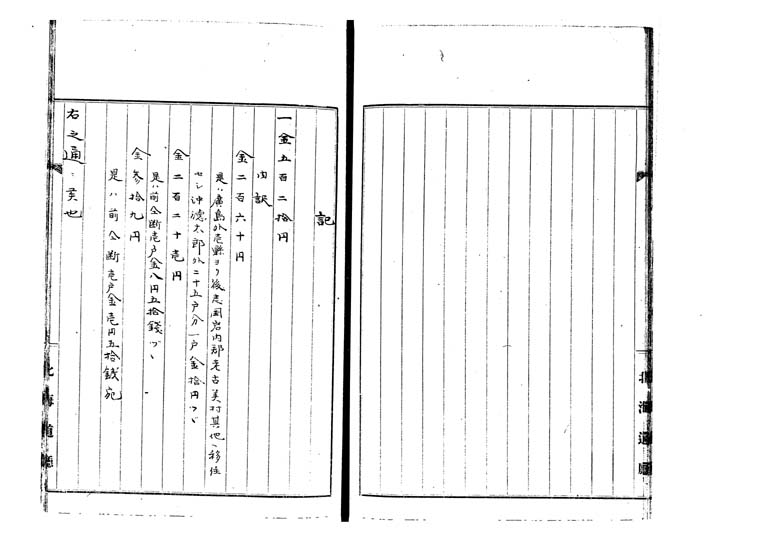 記
一金五百二拾円
内訳
金二百六十円
是ハ廣島外壱縣ヨリ後志国岩内郡老古美村其他ヘ移住
セシ沖徳太郎外二十五戸分一戸金拾円ツヽ
金二百二十壱円
是ハ前仝断壱戸金八円五拾錢ヅヽ
金参拾九円
是ハ前仝断壱戸金壱円五拾銭宛
右之通
也
北海道廳
北海道廳